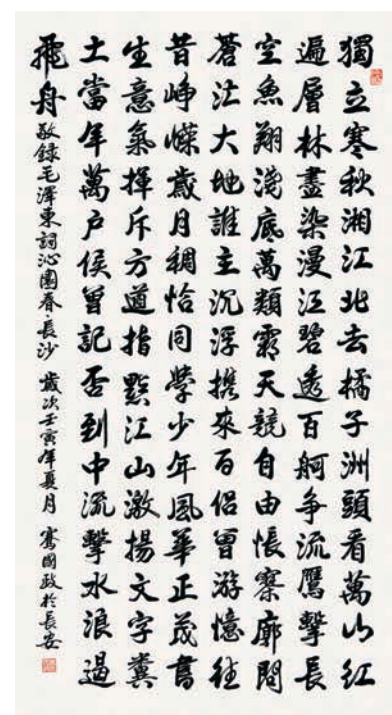 獨立寒秋湘江北去橘子洲頭看萬山紅
遍層林盡染漫江碧透百舸争流鷹擊長
空魚翔淺底萬類霜天競自由悵寥廓問
蒼茫大地誰主沉浮携來百侣曾游憶往
昔崢嶸歲月稠恰同學少年風華正茂書
生意氣揮斥方遒指點江山激揚文字糞
土當年萬户侯曾記否到中流擊水浪遏
飛舟 敬錄毛澤東詞沁園春長沙 歲次壬寅年夏月 騫國政於長安